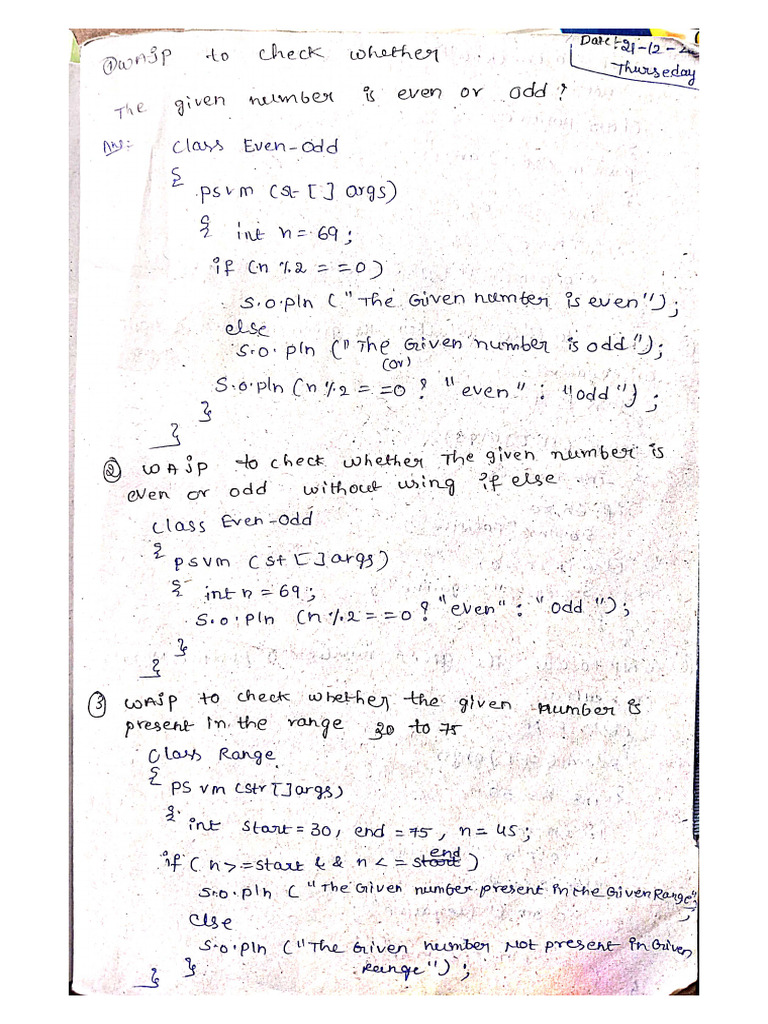 Date:- 21-12-
Thurseday
① WAJP to check whether
The given number is even or odd?
Ans:- class Even-odd
{
psvm (st [] args)
{ int n = 69;
if (n %2 = =0)
S.o.pln ("The Given number is even");
else
S.o.pln ("The Given number is odd");
(or)
S.o.pln (n %2 = =0 ? "even" : "odd");
}
}
② WAJP to check whether The given number is
even or odd without using if else
class Even-odd
{ psvm (st [] args)
{ int n = 69;
S.o.pln (n %2 = =0 ? "even" : "odd");
}
}
③ WAJP to check whether the given number is
present in the range 30 to 75
class Range
{ PS vm (str [] args)
{ int start = 30, end = 75, n = 45;
if (n >= start && n <= start end)
S.o.pln ("The Given number present in the Given Range");
else
S.o.pln ("The Given number Not present in Given
Range");
} }